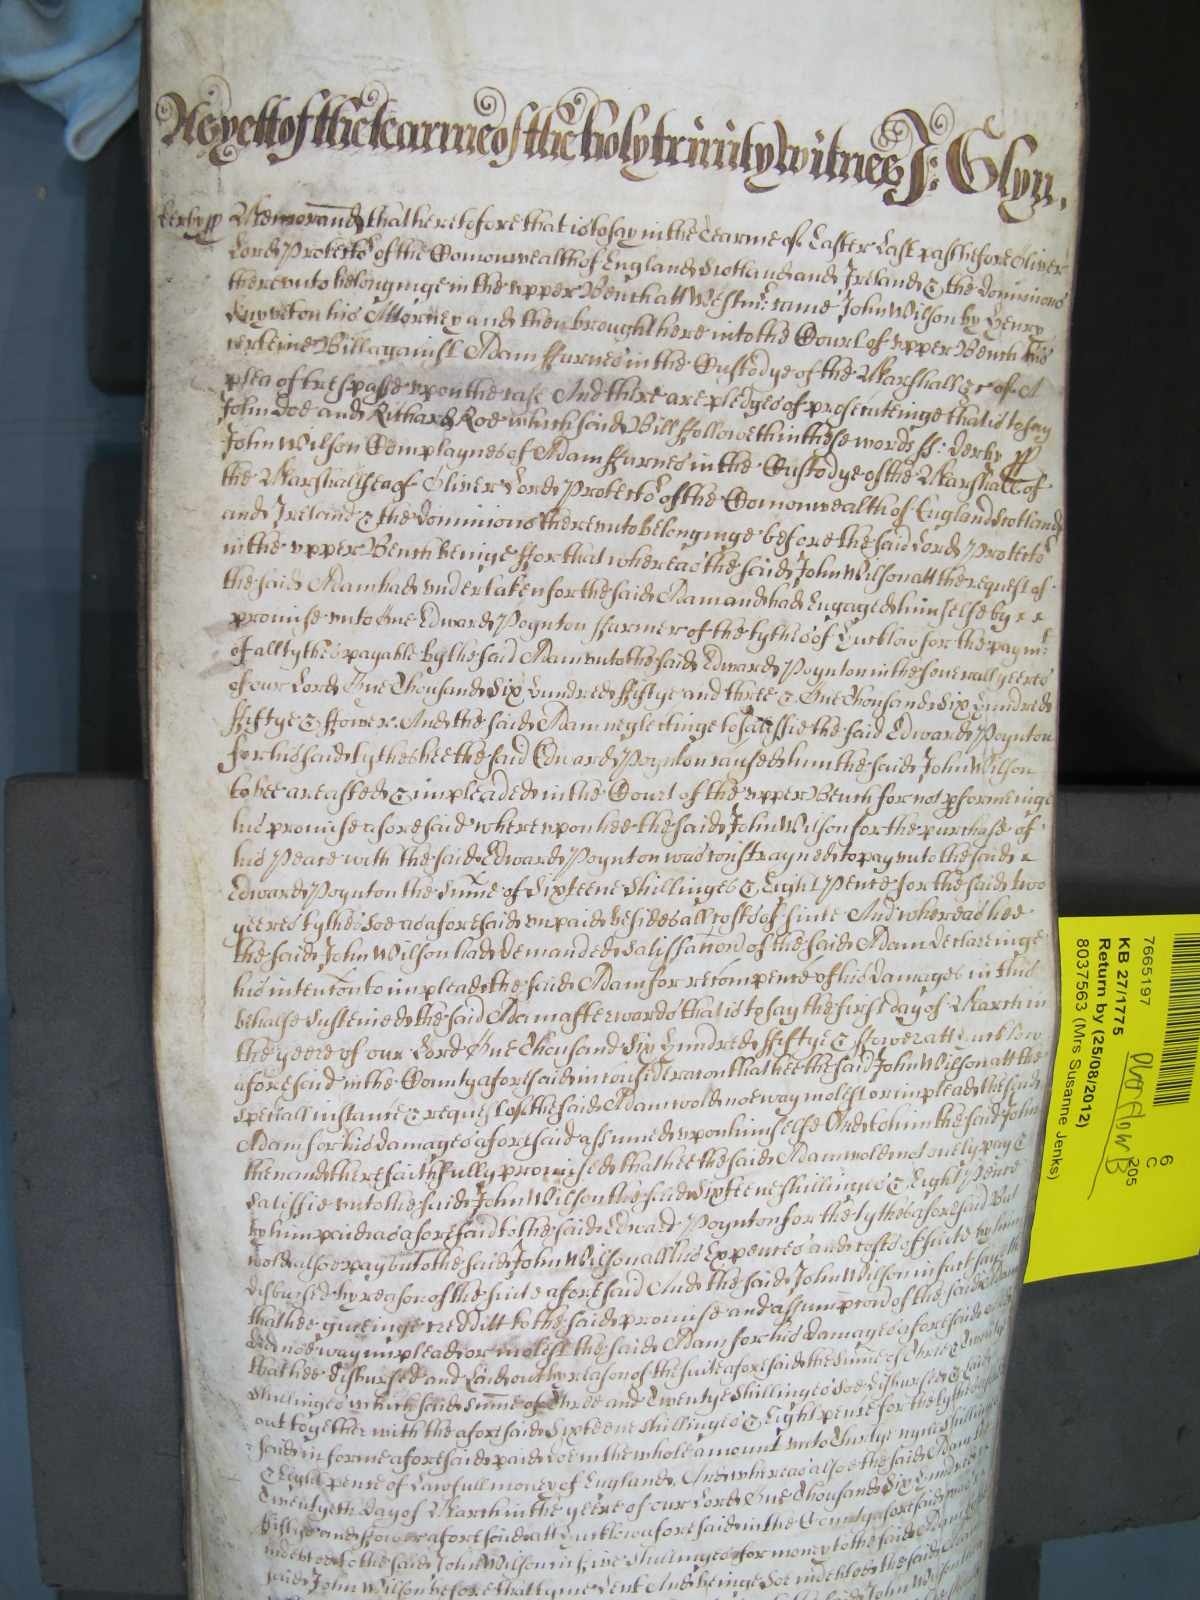 As yett of the tearme of the holy trinity Witnes J: Glyn.
Derby ss Memorand that heretofore that is to say in the Tearme of Easter Last past before Oliver
Lord Protector of the Comonwealth of England Scotland and Ireland & the dominions
thereunto belonginge in the upper Bench att Westmr: came John Wilson by Henry
his Attorney and then brought here into the Court of upper Bench his
certeine Bill against Adam ffurnes in the Custodye of the Marshall &c of A
plea of trespasse upon the case And there are pledges of prosecuteinge that is to say
John Doe and Richard Roe which said Bill ffolloweth in these words ss: Derby ss
John Wilson Complaynes of Adam ffurnes in the Custodye of the Marshall of
the Marshallsea of Oliver Lord Protector of the Comonwealth of England Scotland
and Ireland & the dominions thereunto belonginge before the said Lord Protector
in the upper Bench beinge ffor that whereas the said John Wilson att the request of
the said Adam had undertaken for the said Adam and had Engaged himselfe by
promise unto One Edward Poynton ffarmer of the tythes of Hucklow for the paymt:
of all tythes payable by the said Adam unto the said Edward Poynton in the severall yeeres
of our Lord One Thousand Six Hundred ffiftye and three & One Thousand Six Hundred
ffiftye & ffower. And the said Adam neglectinge to satisfie the said Edward Poynton
for his said tythes hee the said Edward Poynton caused him the said John Wilson
to bee areasted & impleaded in the Court of the upper Bench for not pformeinge
his promise aforesaid whereupon hee the said John Wilson for the purchase of
his Peace with the said Edward Poynton was constrayned to pay unto the said
Edward Poynton the Sume of Sixteene Shillinges & Eight Pence for the said two
yeeres tythes Soe as aforesaid unpaid besides all costs of suite And whereas hee
the said John Wilson had demanded satisfaction of the said Adam declareinge
his intention to impleade the said Adam for recompence of his damages in this
behalfe susteined the said Adam afterwards that is to say the first day of March in
the yeere of our Lord One Thousand Six Hundred ffiftye & ffower att Hucklow
aforesaid in the County aforesaid in consideracon that hee the said John Wilson att the
speciall instance & request of the said Adam wold noe way molest or impleade the said
Adam for his damages aforesaid assumed upon himselfe And to him the said John
then and there faithfully promised that hee the said Adam wold not onely pay &
satisfie unto the said John Wilson the said Sixteene shillinges & Eight Pence
by him paid as aforesaid to the said Edward Poynton for the tythes aforesaid But
wold alsoe pay unto the said John Wilson all his Expences and costs of suite by him
disbursed by reason of the suite aforesaid And the said John Wilson in fact sayth
that hee giveinge creditt to the said promise and assumption of the said Adam
did noe way impleade or molest the said Adam for his damages aforesaid And
that hee disbursed and Laid out by reason of the suite aforesaid the Sume of Three & Twentye
shillinges which said Sume of Three and Twentye Shillinges Soe disbursed & Laid
out together with the aforesaid Sixteene Shillinges & Eight pence for the tythes aforesaid
in forme aforesaid paid doe in the whole amount unto Thirtye nyne shillinges
& Eight pence of Lawfull money of England. And whereas alsoe the said Adam the
Twentyeth day of March in the yeere of our Lord One Thousand Six Hundred
ffiftye and ffower aforesaid att Hucklow aforesaid in the County aforesaid was
indebted to the said John Wilson in five shillinges for money to the said Adam by the
said John Wilson before that tyme Lent And beinge Soe indebted the said Adam
7665197
KB 27/1775
Return by (25/08/2012)
8037563 (Mrs Susanne Jenks)
Overflow B
6
C
205